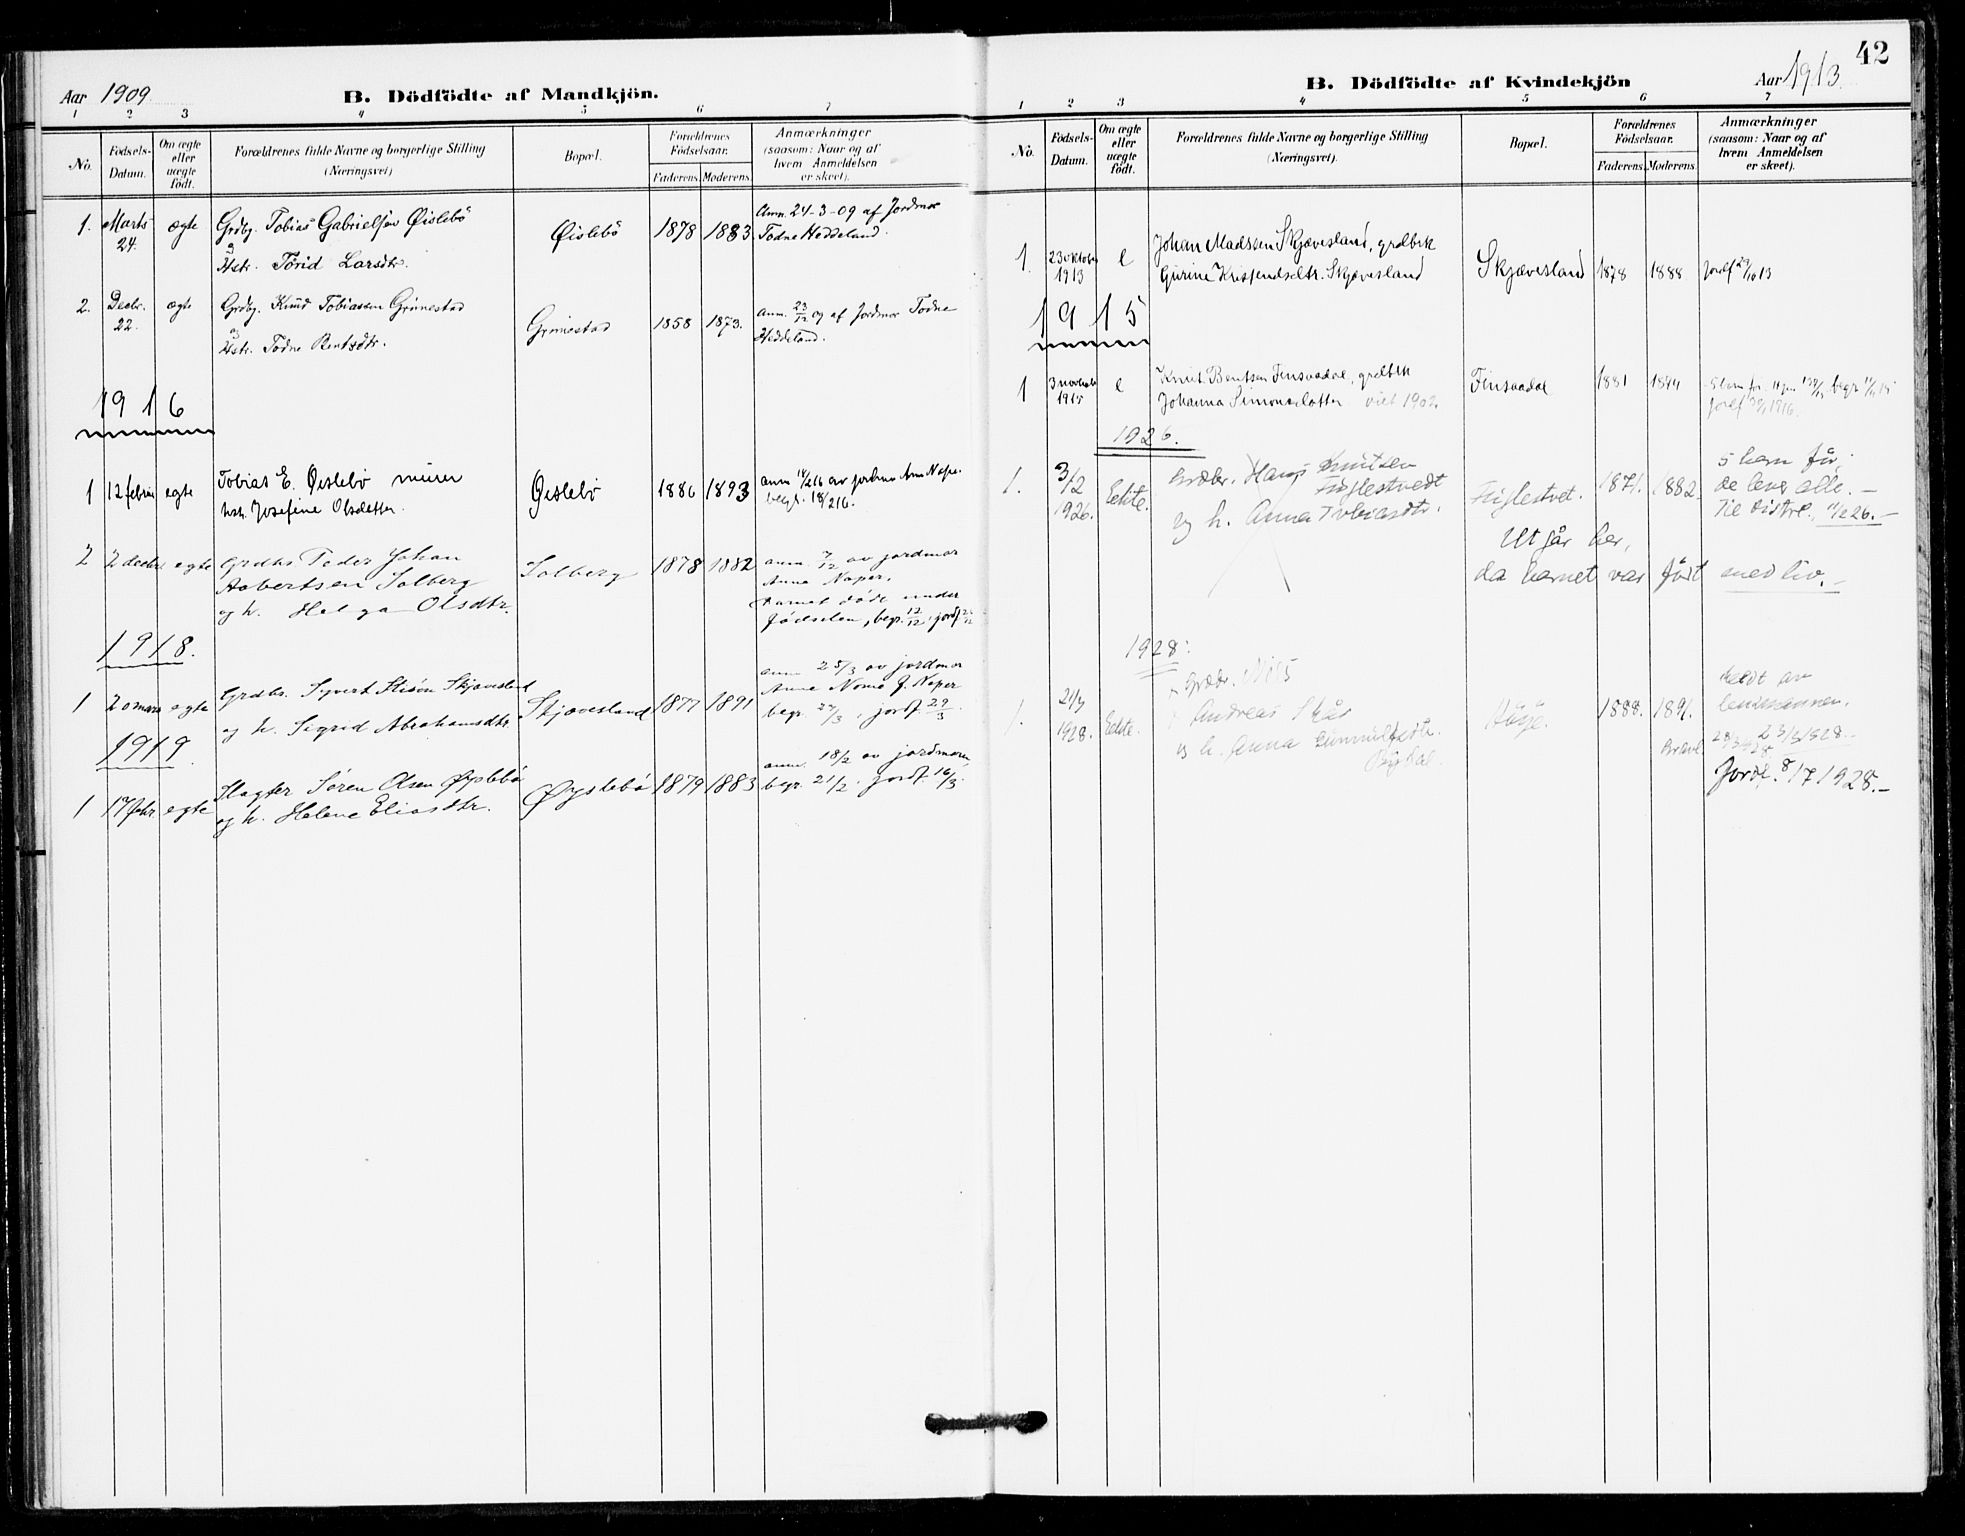 Aar 1909
B. Dödfödte af Mandkjön.
1 2 3 4 5 6 7
No.
Födsels-Datum.
Om ægte eller uægte födt.
Forældrenes fulde Navne og borgerlige Stilling (Næringsvei)
Bopæl.
Forældrenes Födselsaar.
Faderens. Moderens.
Anmærkninger (saasom: Naar og af hvem Anmeldelsen er skeet).
1. Marts 24. ægte Grdbg. Tobias Gabrielsen Øislebö Øislebö 1878 1883 Anm. 24-3-09 af Jordmor
Hstr. Torid Larsdtr. Todne Heddeland.
2. Decbr. 22. ægte Grdbg. Knud Tobiassen Grimestad Grimestad 1858 1873. Anm. 23/12 09 af Jordmor Todne
Hstr. Todne Bentsdtr. Heddeland.
1916
1 12 febru egte Tobias E. Øislebø murer Øislebø 1886 1893 anm 14/2 16 av jordmor Ann Noper
hstr. Josefine Olsdatter. begr. 18/2 16.
2 2 decbr egte Grdbr Peder Johan Solberg 1878 1882 anm. 7/12 av jordmor
Robertsen Solberg Anna Noper.
og h. Helga Olsdtr. Barnet døde under
fødselen, begr. 12/12, jordf.
1918.
1 20 mars egte Grdbr. Syvert Skjævesland Skjævesland 1877 1891 anm 25/3 av jordmor
og h. Sigrid Abrahamsdtr. Anna Nome f. Noper
begr. 27/3, jordf. 29/3.
1919
1 17 febr. egte Slagter Søren Olsen Øyslebø Øyslebø 1879 1883 anm. 18/2 av jordmoren,
og h. Helene Eliasdtr. begr. 21/2, jordf. 16/3.
42
Aar 1913
B. Dödfödte af Kvindekjön
1 2 3 4 5 6 7
No.
Födsels-Datum.
Om ægte eller uægte födt.
Forældrenes fulde Navne og borgerlige Stilling (Næringsvei).
Bopæl.
Forældrenes Födselsaar.
Faderens. Moderens.
Anmærkninger (saasom: Naar og af hvem Anmeldelsen er skeet).
1. 23 oktober 1913 e Johan Madssen Skjævesland, grdbrk Skjævesland 1878 1888 Jordf 29/10 13
Gurine Kristendsdtr. Skjævesland
1915
1 3 novbr 1915 e Knut Bentsen Finsaadal, grdbrk Finsaadal 1881
Johanna Simonsdatter viet 1902.
1926.
1. 3/2 1926. Eekte. Grdbr. Hans Knutsen Fuglestvedt Fuglestvet. 1871. 1882. 5 barn før.
og h. Anna Tobiasdtr. de lever alle. —
Til distrl. 26. —
Utgår her,
da barnet var født med liv. —
1928:
1. 21/3 1928. Eekte. Grdbr. Nils Høye. 1888. 1891. Meldt av
Andreas Skår lensmannen.
og h. Anna Gunnulfsdtr. 23/3 1928 —
Jordf. 8/7 1928. —